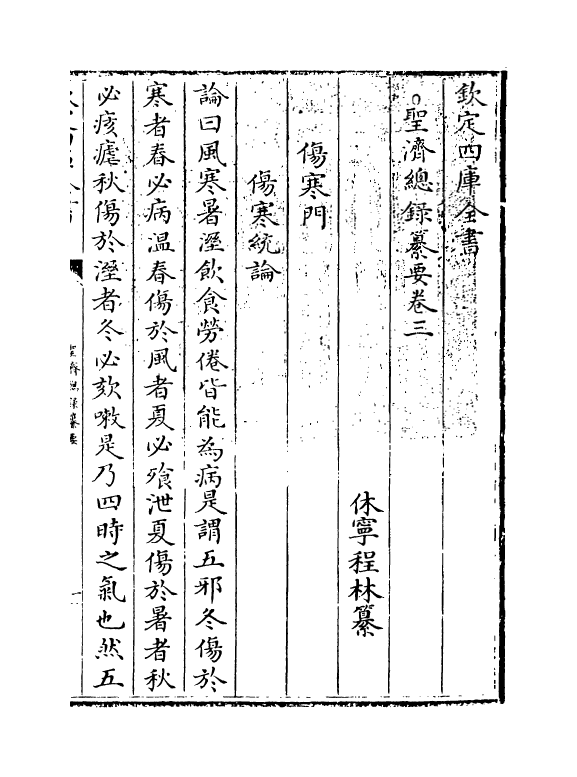 欽定四庫全書
聖濟總錄纂要卷三
休寧程林纂
傷寒門
傷寒統論
論曰風寒暑溼飲食勞倦皆能為病是謂五邪冬傷於
寒者春必病温春傷於風者夏必飱泄夏傷於暑者秋
必痎瘧秋傷於溼者冬必欬嗽是乃四時之氣也然五
聖濟總錄纂要
一